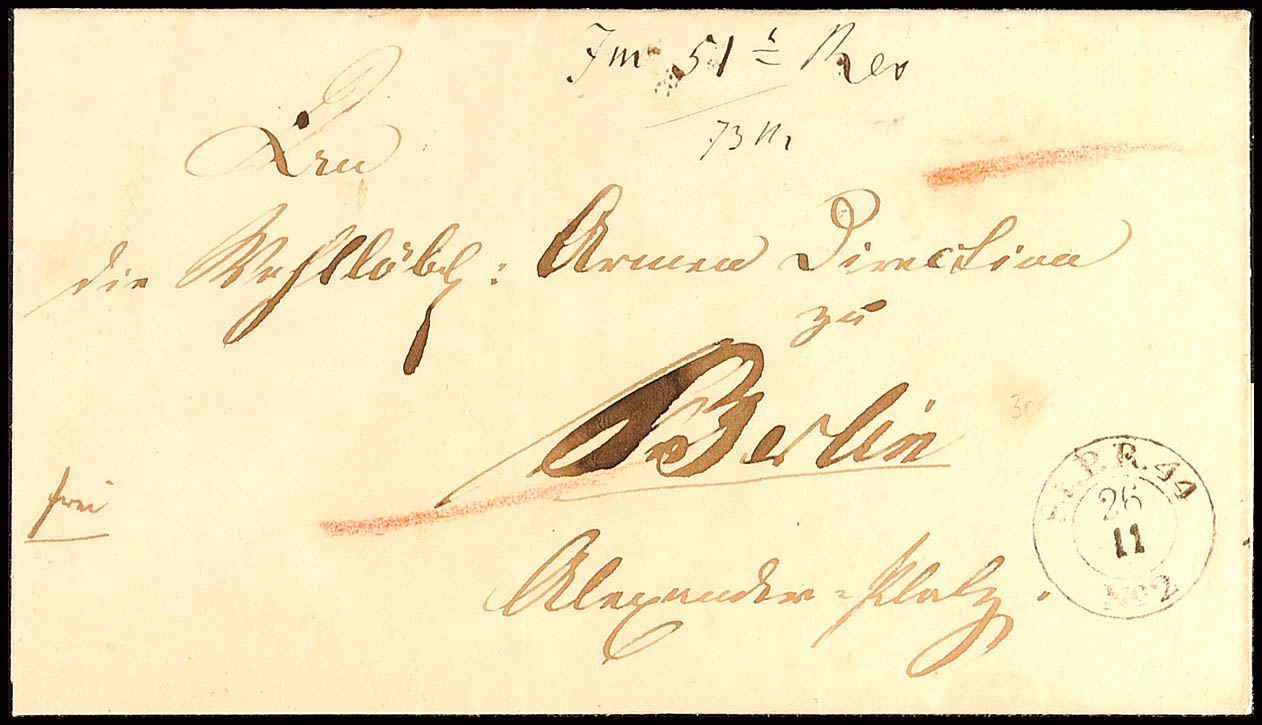 Im 51ᵗ Rev
73 N
die Wohllöbl: Armen Direction
zu
Berlin
frei
Alexander-Platz.
St.P.R.44
26
11
No2